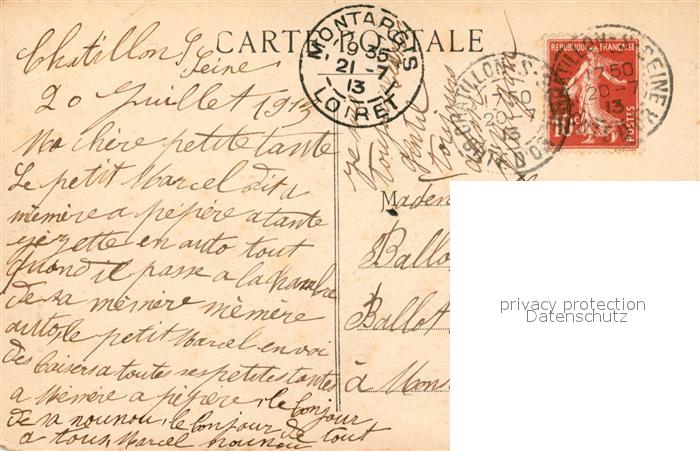 CARTE POSTALE
Chatillon S/
Seine
20 Juillet 1913
Ma chère petite tante
Le petit Marcel dit a
mèmère a pépère a tante
en auto tout
quand il passe a la chambre
de sa mèmère mèmère
auto, le petit Marcel envoi
des baisers a toutes ses petites tantes
a Mémère a pépère, le bonjour
de sa nounou, le bonjour de tout
a tous, Marcel nounou
MONTARGIS
19 35
21 -7
13
LOIRET
REPUBLIQUE FRANÇAISE
10
POSTES
CHATILLON-S-SEINE
17 50
20 -7
13
CHATILLON-S-
20 -7
13
Je
toujours
gentil
toujours
Madem
Ballo
Ballot
à Mon
privacy protection
Datenschutz